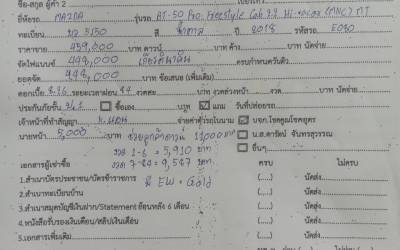 ชื่อ-สกุล ผู้ค้ำ 2
ยี่ห้อรถ MAZDA รุ่นรถ BT-50 Pro. Freestyle Cab 2.2 Hi-Racer (MNC) MT
ทะเบียน 3150 สี ปี 2018 รหัสรถ E080
ราคาขาย 459,000 บาท ดาวน์ บาท ค้าง บาท นัดจ่าย
จัดไฟแนนซ์ 449,000 เกียรตินาคิน ครบกำหนดวันที่
ยอดจัด 449,000 บาท ข้อเสนอ (เพิ่มเติม)
ดอกเบี้ย 8.26 ระยะเวลาผ่อน 84 งวดๆละ บาท
ประกันภัยชั้น ซื้อเอง บาท แถม วันที่ปล่อยรถ
เจ้าหน้าที่ทำสัญญา จ่ายค่าตัวรถในนาม บจก.โชคคูณโชคอยุธ
นายหน้า 5,000 ช่วยลูกค้าดาวน์ 11,000 บาท น.ส.ดารัตน์ จันทรสุวรรณ
งวด 1-6 = 5,910 บาท อื่นๆ
งวด 7-84 = 9,587 บาท
เอกสารผู้เช่าซื้อ ครบ ไม่ครบ
1.สำเนาบัตรประชาชน/บัตรข้าราชการ EW = Gold (.....) นัดส่ง
2.สำเนาทะเบียนบ้าน (.....) นัดส่ง
3.สำเนาสมุดบัญชีเงินฝาก/Statement ย้อนหลัง 6 เดือน (.....) นัดส่ง
4.หนังสือรับรองเงินเดือน/สลิปเงินเดือน (.....) นัดส่ง
5.เอกสารเพิ่มเติม (.....) นัดส่ง